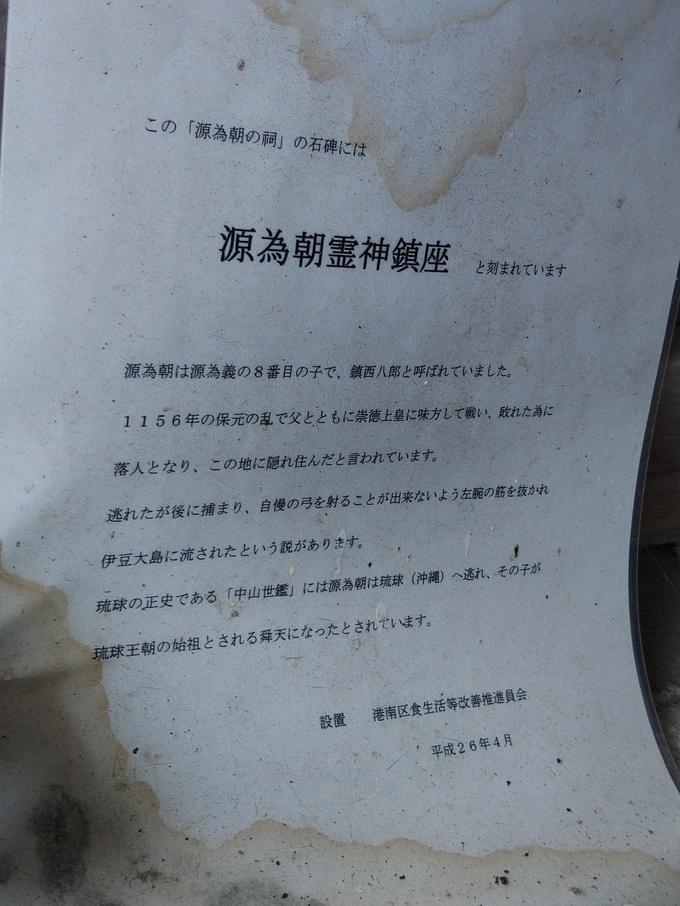 この「源為朝の祠」の石碑には
源為朝霊神鎮座 と刻まれています
源為朝は源為義の8番目の子で、鎮西八郎と呼ばれていました。
1156年の保元の乱で父とともに崇徳上皇に味方して戦い、敗れた為に
落人となり、この地に隠れ住んだと言われています。
逃れたが後に捕まり、自慢の弓を射ることが出来ないよう左腕の筋を抜かれ
伊豆大島に流されたという説があります。
琉球の正史である「中山世鑑」には源為朝は琉球（沖縄）へ逃れ、その子が
琉球王朝の始祖とされる舜天になったとされています。
設置 港南区食生活等改善推進員会
平成26年4月